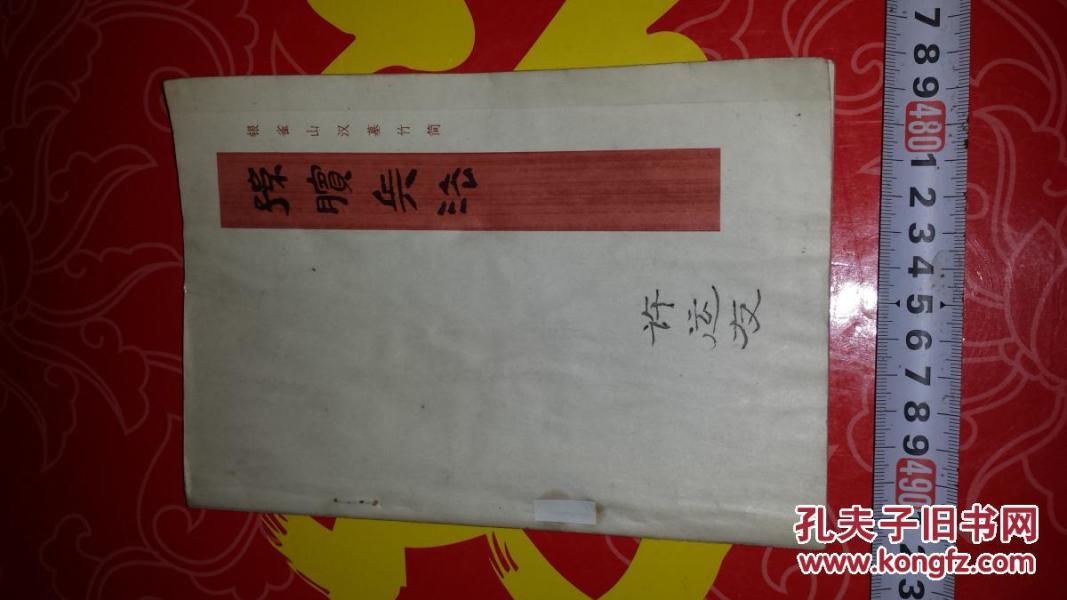 银雀山汉墓竹简
孫臏兵法
许运友
7 8 9 480 1 2 3 4 5 6 7 8 9 490 2 3
孔夫子旧书网
www.kongfz.com